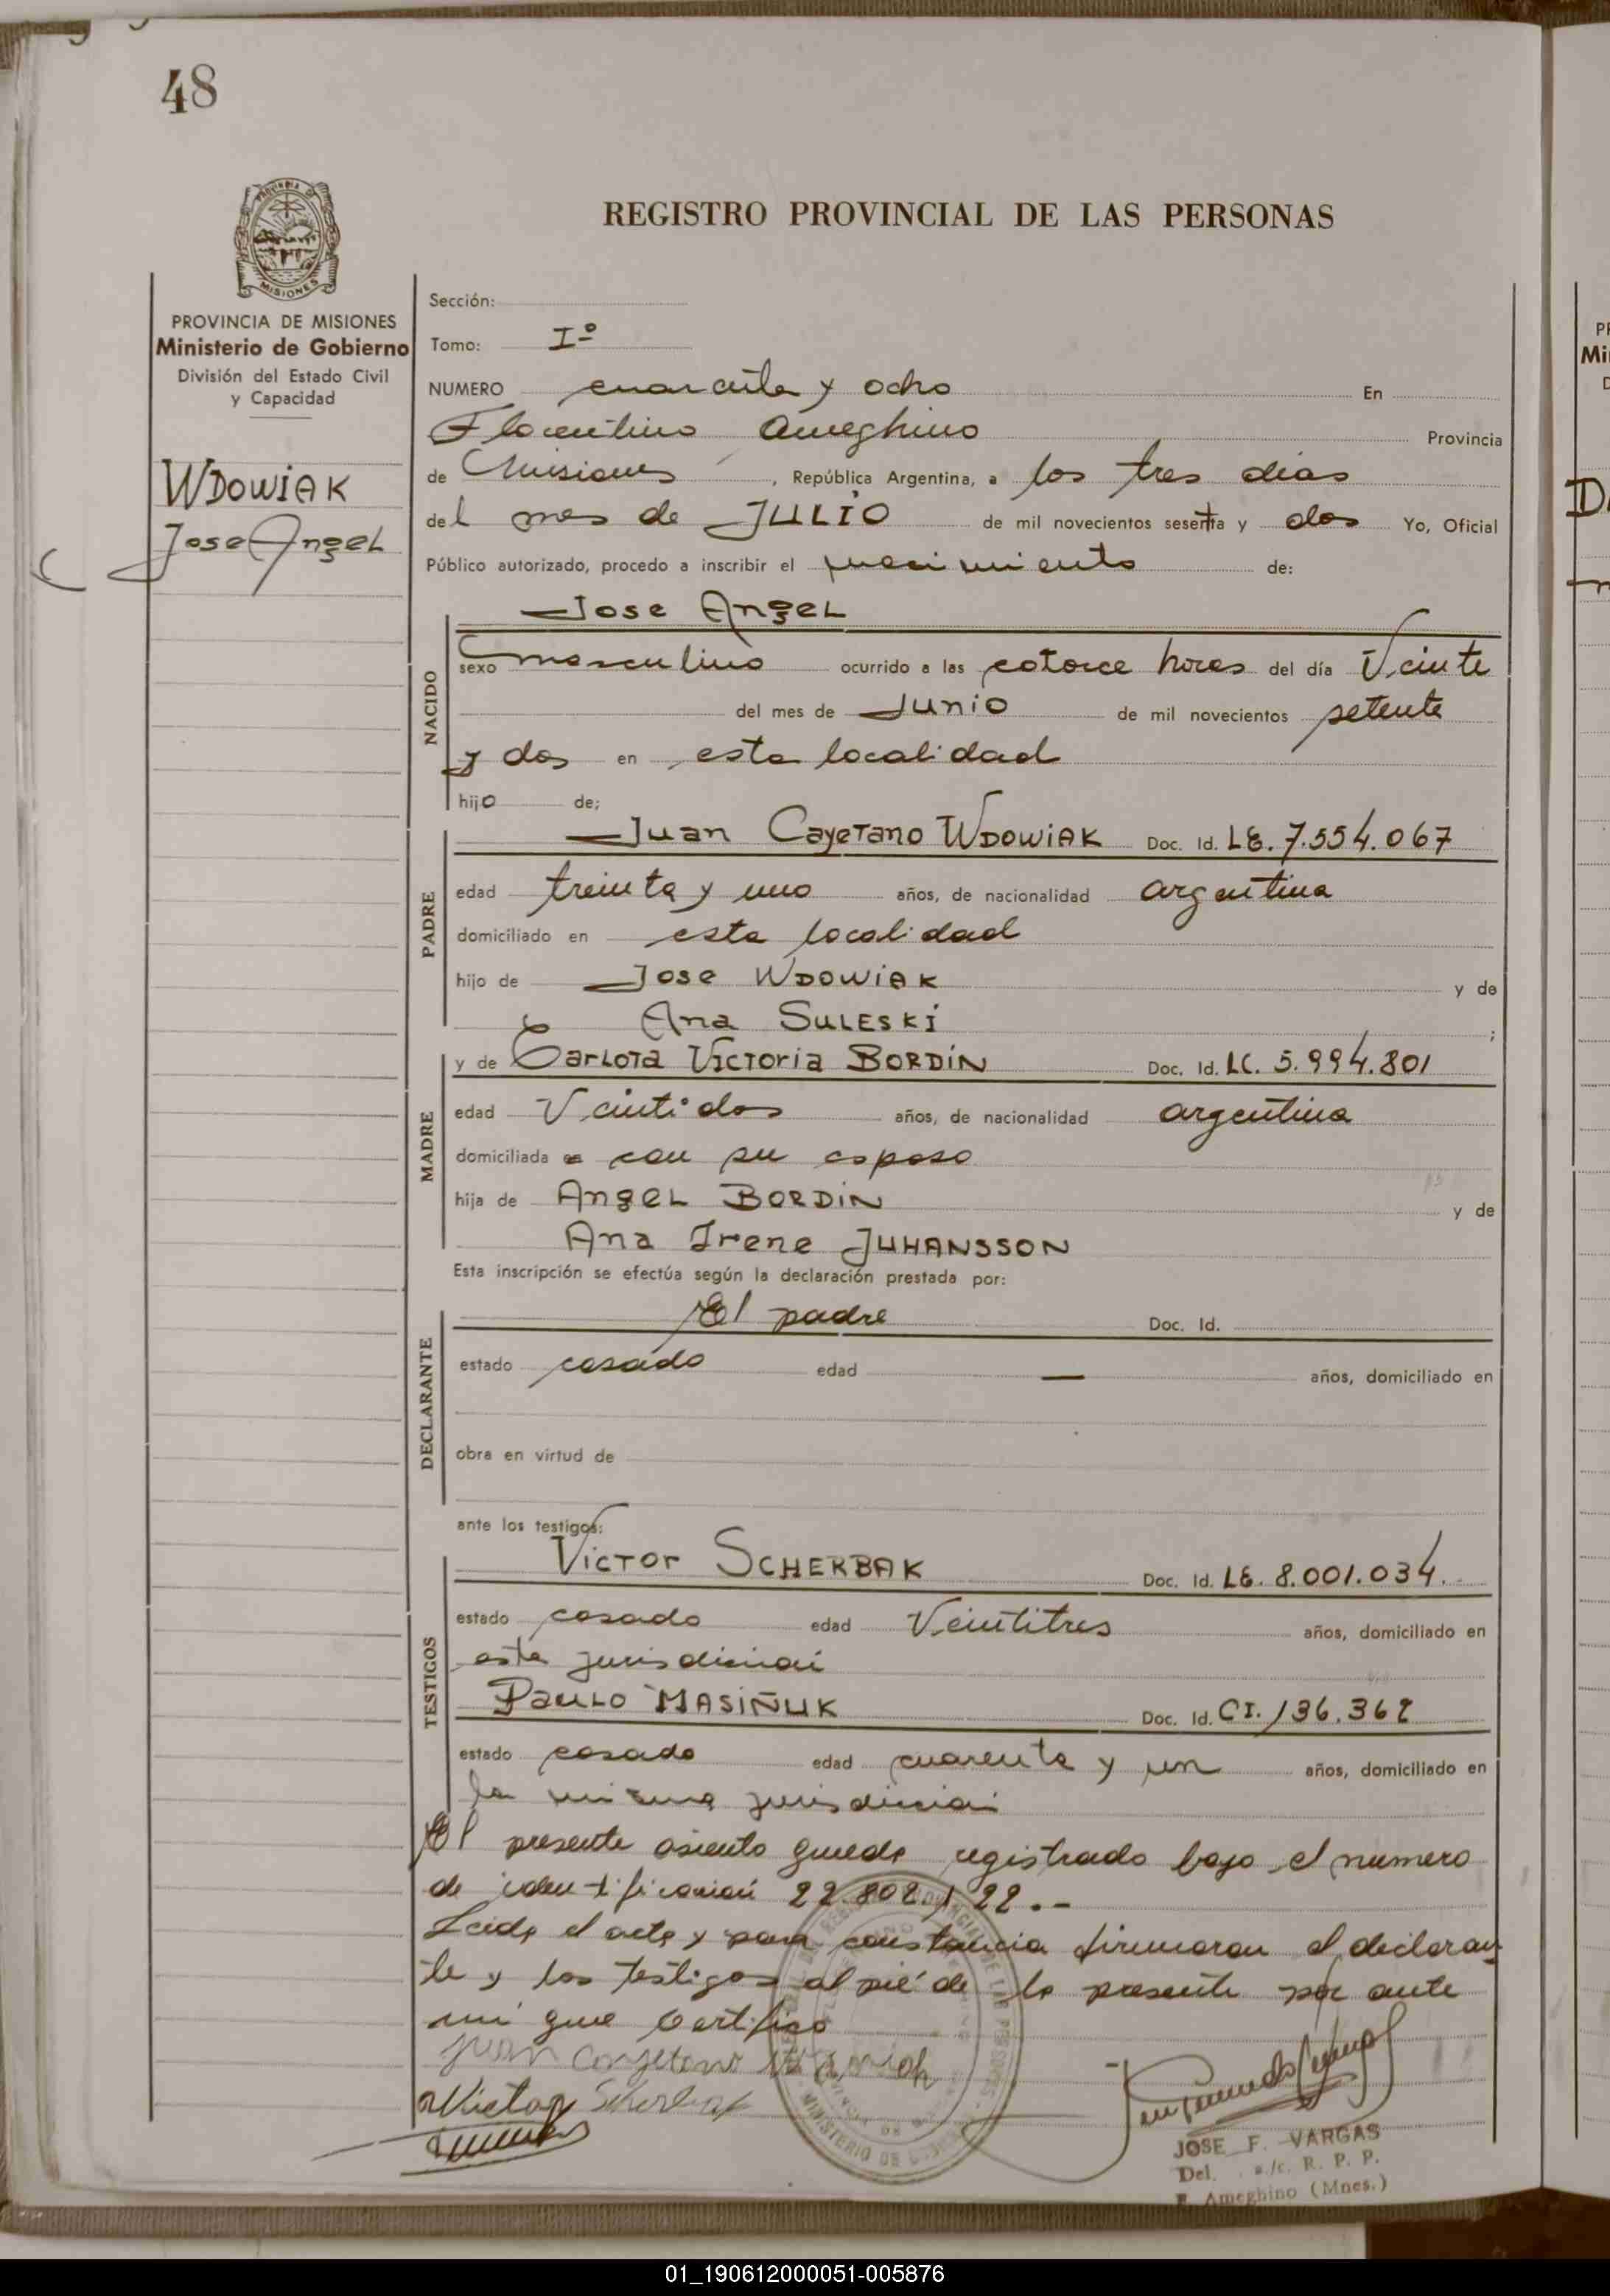 48
PROVINCIA DE MISIONES
Ministerio de Gobierno
División del Estado Civil
y Capacidad
WDOWIAK
Jose Angel
REGISTRO PROVINCIAL DE LAS PERSONAS
Sección:
Tomo: Iº
NUMERO cuarenta y ocho En
Florentino Ameghino Provincia
de Misiones, República Argentina, a los tres dias
del mes de JULIO de mil novecientos sesenta y dos Yo, Oficial
Público autorizado, procedo a inscribir el nacimiento de:
Jose Angel
NACIDO
sexo masculino ocurrido a las catorce horas del día Veinte
del mes de Junio de mil novecientos setenta
y dos en esta localidad
hijo de;
PADRE
Juan Cayetano WDOWIAK Doc. Id. LE. 7.554.067
edad treinta y uno años, de nacionalidad argentina
domiciliado en esta localidad
hijo de Jose WDOWIAK y de
Ana SULESKI ;
MADRE
y de Carlota Victoria BORDIN Doc. Id. LC. 5.994.801
edad Veintidos años, de nacionalidad argentina
domiciliada con su esposo
hija de Angel BORDIN y de
Ana Irene JUHANSSON
Esta inscripción se efectúa según la declaración prestada por:
DECLARANTE
El padre Doc. Id.
estado casado edad — años, domiciliado en
obra en virtud de
ante los testigos:
TESTIGOS
Victor SCHERBAK Doc. Id. LE. 8.001.034.-
estado casado edad Veintitres años, domiciliado en
esta jurisdicción
Paulo MASIÑUK Doc. Id. CI. 136.362
estado casado edad cuarenta y un años, domiciliado en
la misma jurisdicción
El presente asiento queda registrado bajo el numero
de identificación 22.802.122.-
Leida el acta y para constancia firmaran el declaran
te y los testigos al pié de la presente por ante
mi que certifico
Juan Cayetano Wdowiak
Victor Scherbak
JOSE F. VARGAS
Del. a/c. R. P. P.
F. Ameghino (Mnes.)
01_190612000051-005876